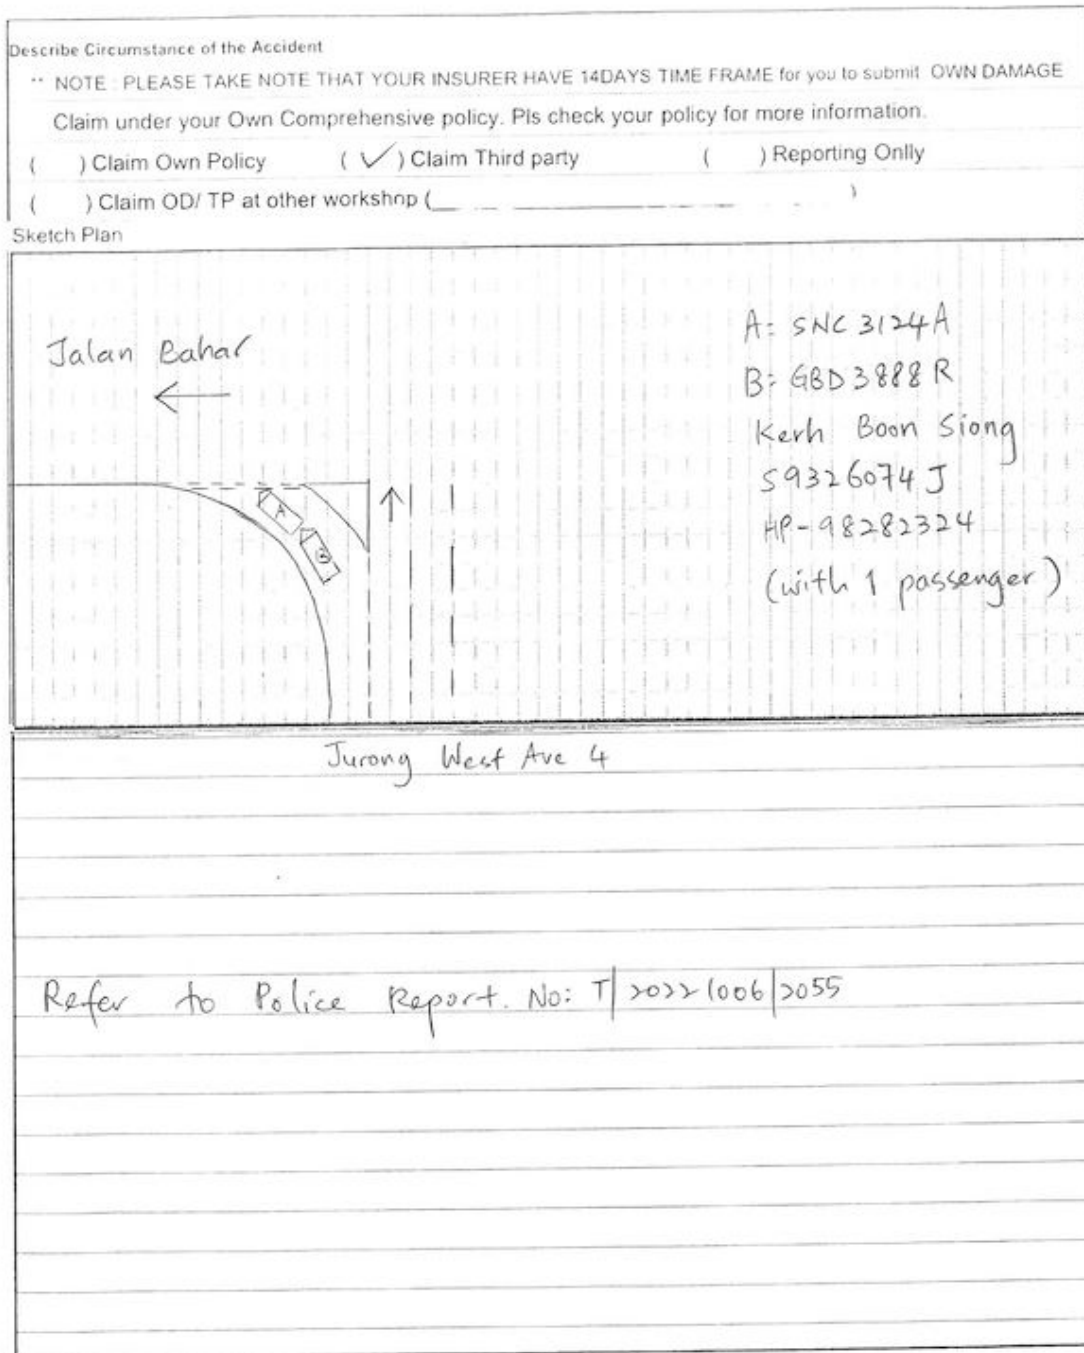 Describe Circumstance of the Accident
** NOTE : PLEASE TAKE NOTE THAT YOUR INSURER HAVE 14DAYS TIME FRAME for you to submit OWN DAMAGE
Claim under your Own Comprehensive policy. Pls check your policy for more information.
( ) Claim Own Policy ( ✓ ) Claim Third party ( ) Reporting Onlly
( ) Claim OD/ TP at other workshop ( )
Sketch Plan
A: SNC 3124A
Jalan Bahar
B: GBD 3888 R
Kerh Boon Siong
S9326074J
HP-98282324
(with 1 passenger)
A
B
Jurong West Ave 4
Refer to Police Report. No: T/20221006/2055